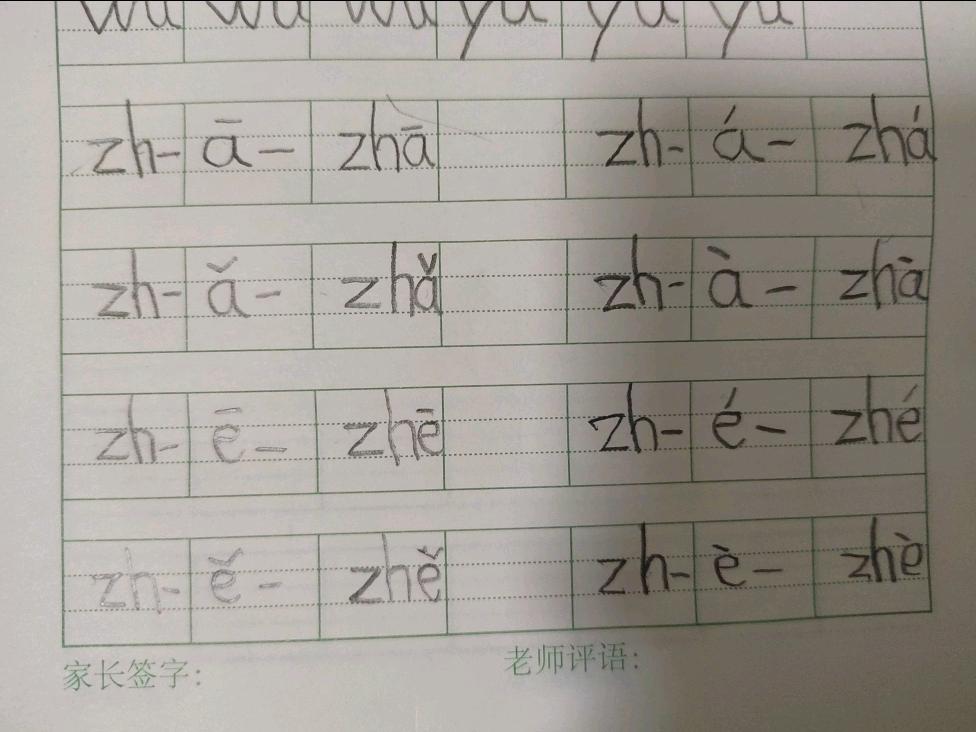 zh- ā- zhā zh- á- zhá
zh- ǎ- zhǎ zh- à- zhà
zh- ē- zhē zh- é- zhé
zh- ě- zhě zh- è- zhè
家长签字: 老师评语: